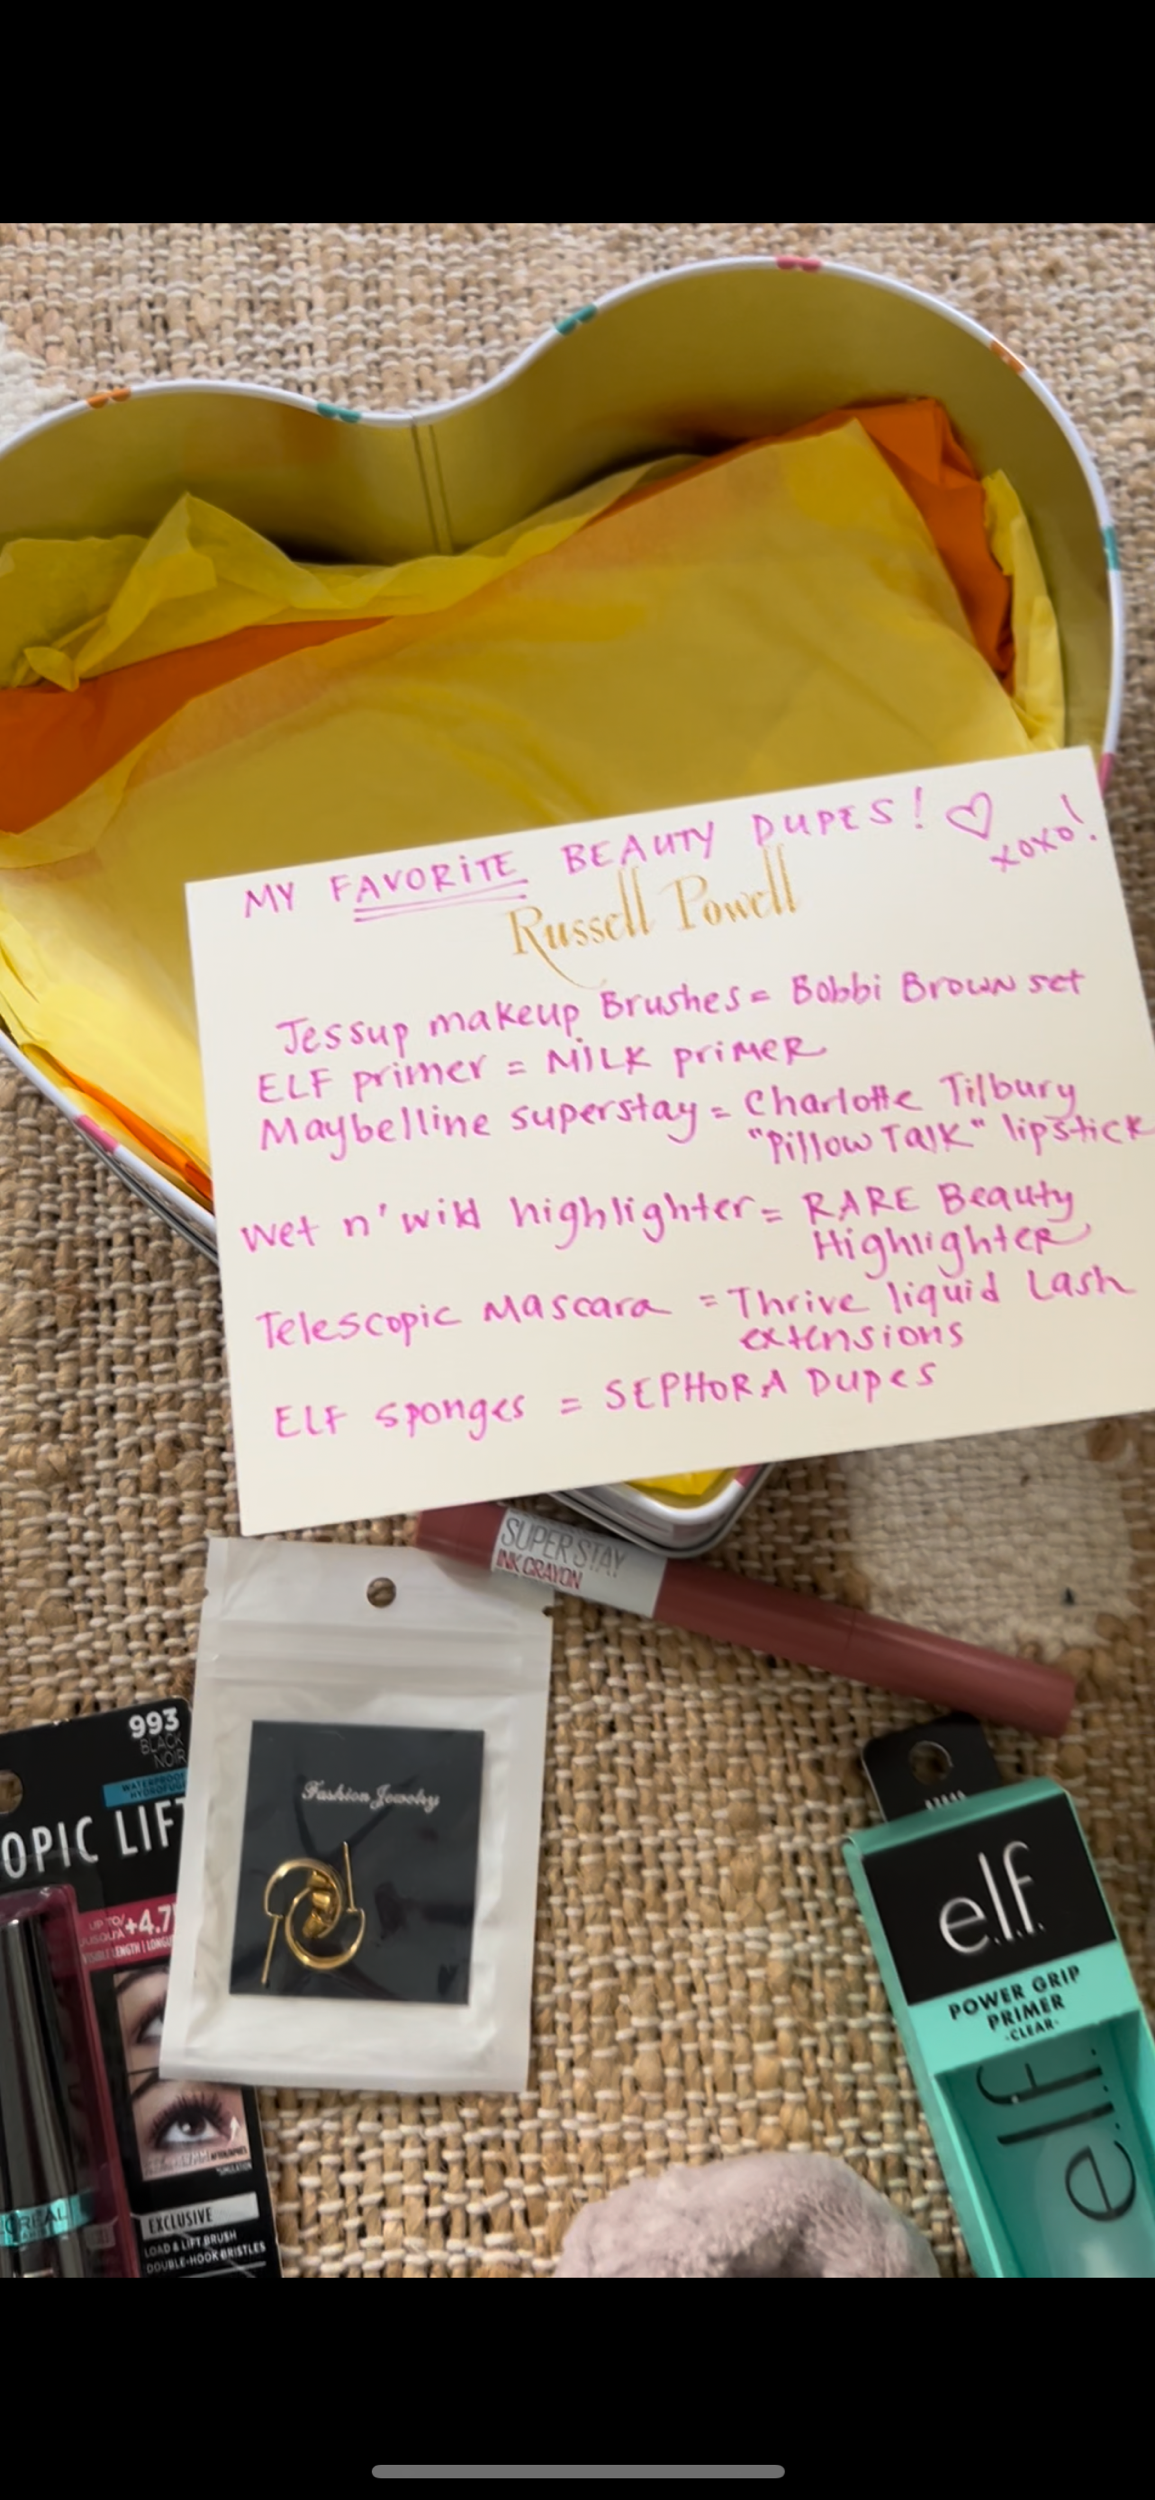 MY FAVORITE BEAUTY DUPES! ♡ xoxo!
Russell Powell
Jessup makeup Brushes = Bobbi Brown set
ELF primer = MILK primer
Maybelline superstay = Charlotte Tilbury
"Pillow Talk" lipstick
Wet n' wild highlighter = RARE Beauty
Highlighter
Telescopic Mascara = Thrive liquid Lash
extensions
ELF sponges = SEPHORA Dupes
SUPER STAY
INK CRAYON
993
BLACK
NOIR
WATERPROOF
OPIC LIFT
UP TO/
JUSQU'À +4.7
EXCLUSIVE
LOAD & LIFT BRUSH
DOUBLE-HOOK BRISTLES
Fashion Jewelry
e.l.f.
POWER GRIP
PRIMER
-CLEAR-
e.l.f.